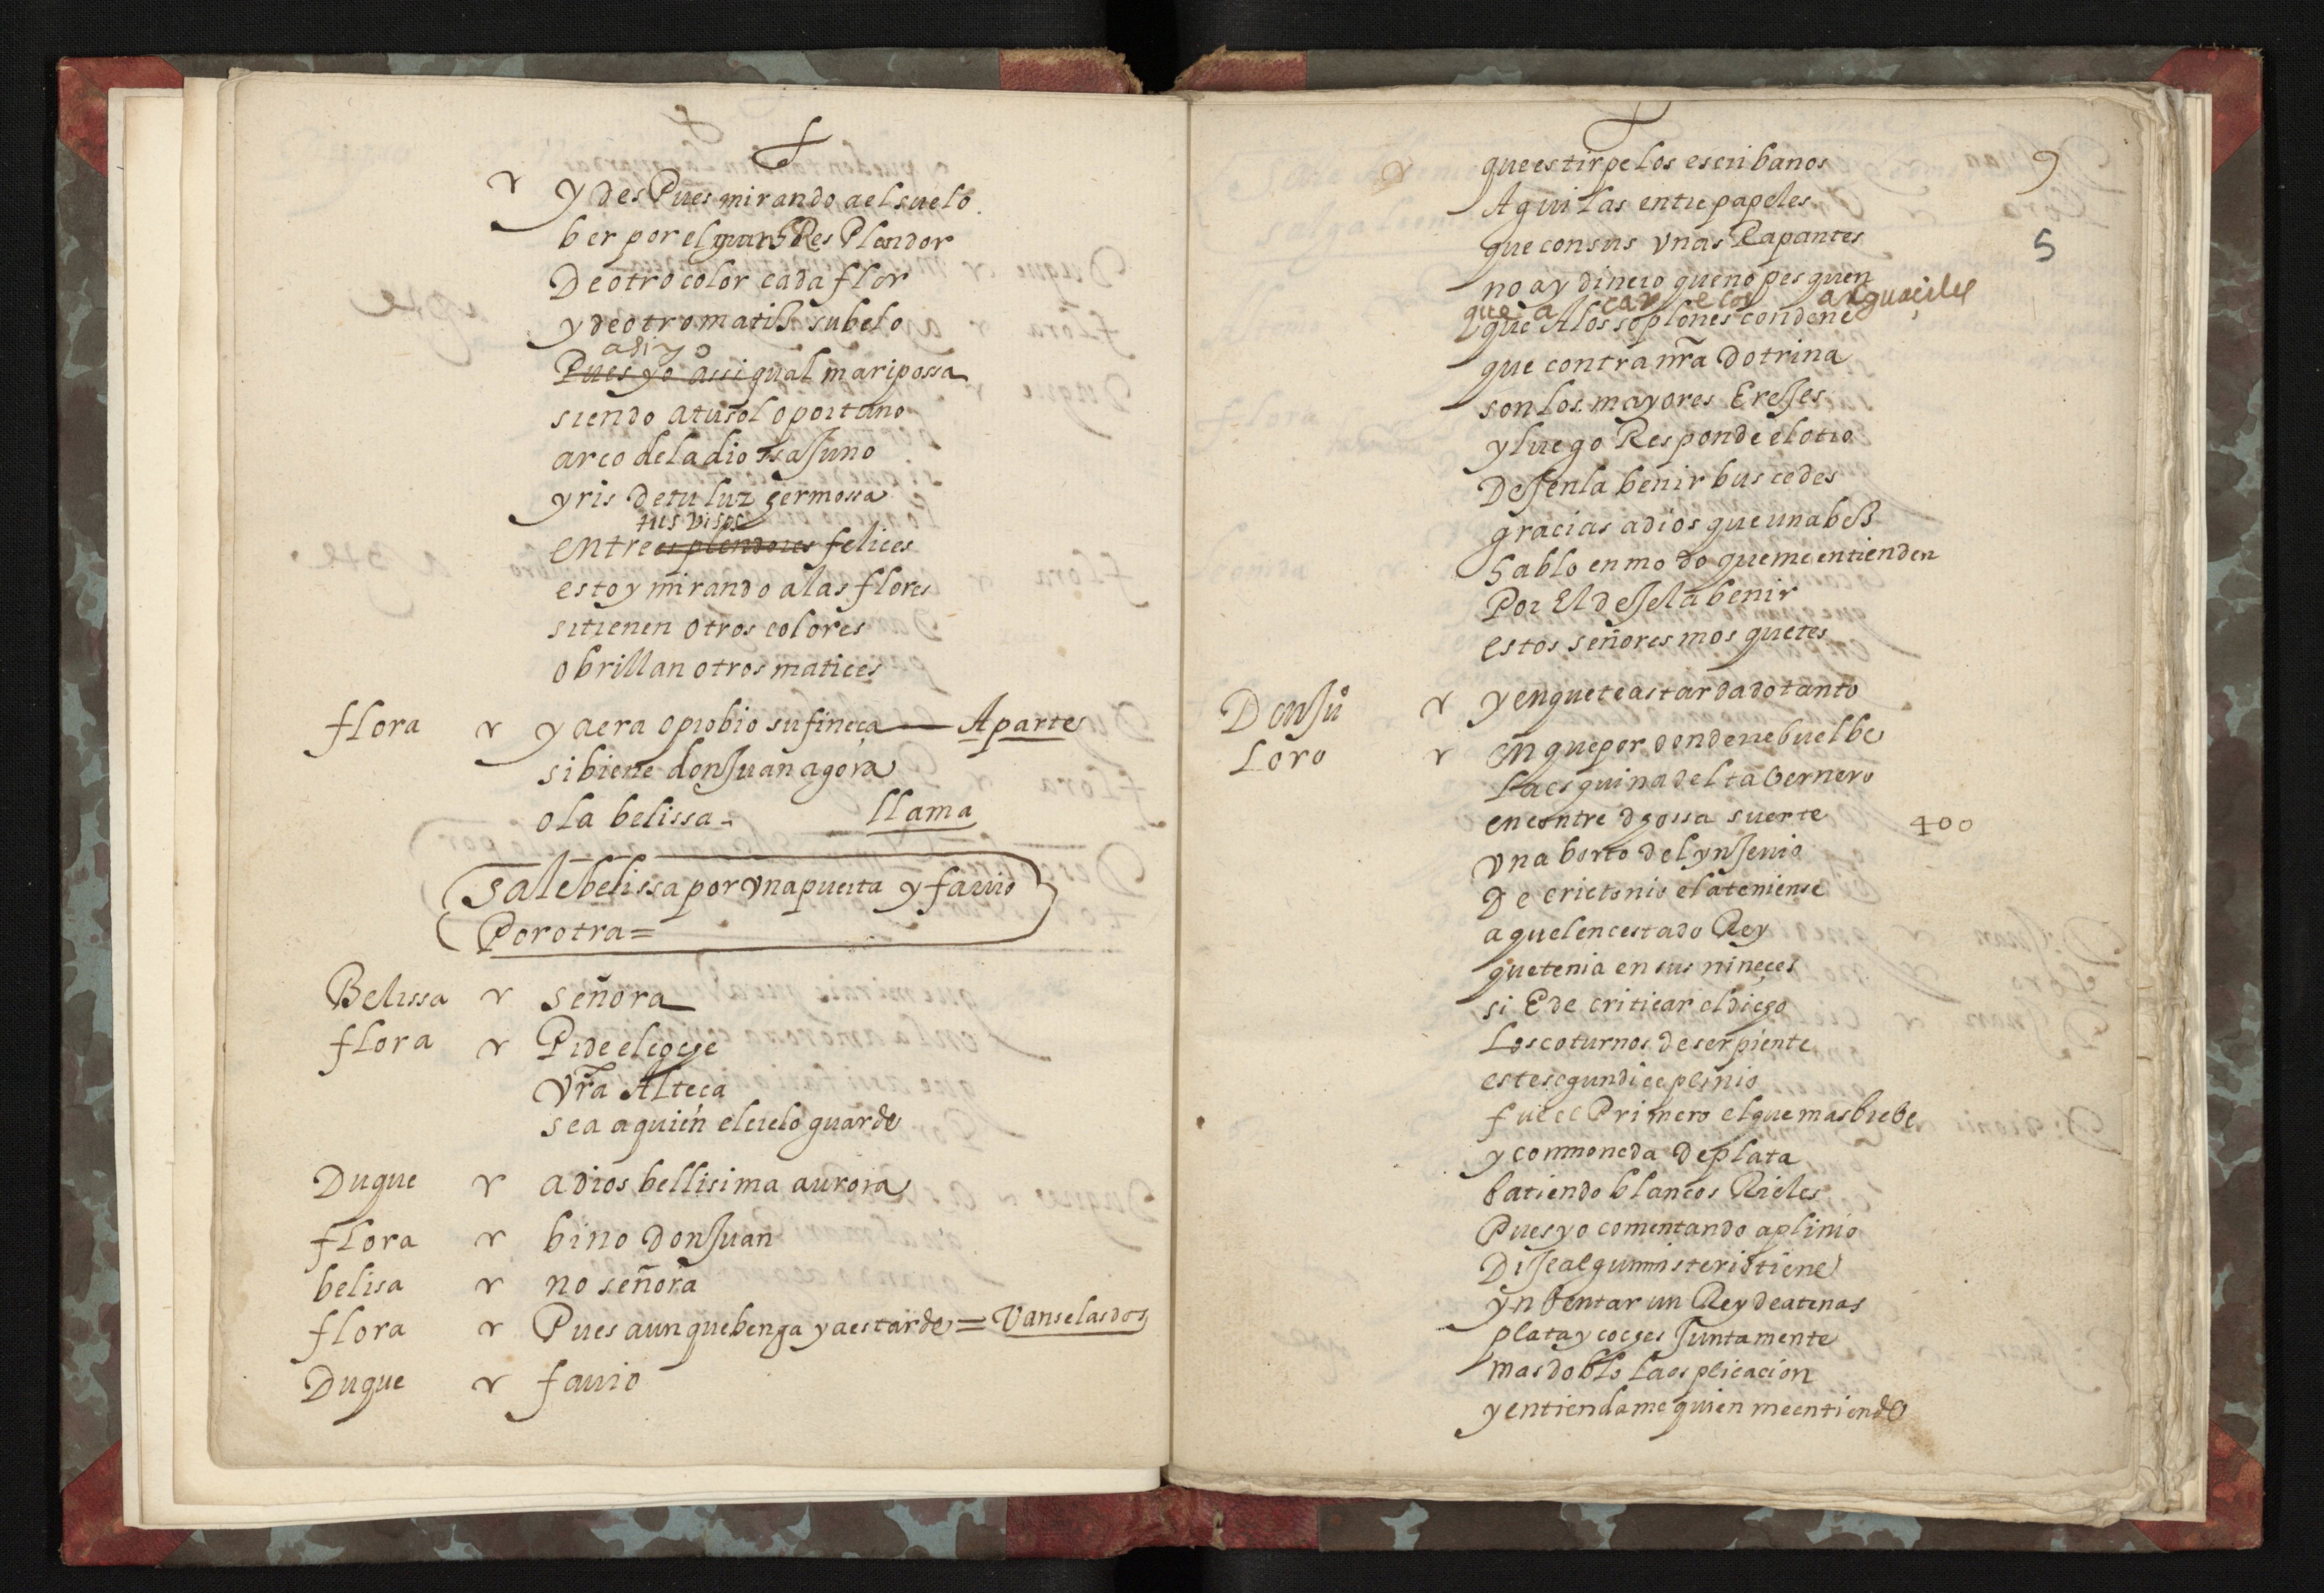 y desPues mirando a el suelo
ber por el ResPlendor
De otro color cada flor
y de otro matiss subelo
asi yo
Pues yo assi qual mariposa
siendo atusol oportuno
arco de la diossa Juno
yris de tu luz hermossa
tus visos
entre esplendores felices
estoy mirando a las flores
si tienen otros colores
o brillan otros matices
flora r ya era oprobio su fineça Aparte
si biene don Juan agora
ola belissa llama
Sale belissa por vna puerta y fauio
Por otra=
Belissa r señora
flora r Pide el coche
Vrã Alteça
sea a quien el cielo guarde
Duque r a dios bellisima aurora
flora r bino don Juan
belisa r no señora
flora r Pues aunque benga ya es tarde = Vanse las dos
Duque r fauio
9
5
que estirpe los escribanos
Aguilas entre papeles
que con sus vnas Rapantes
no ay dinero que no pesquen
que a los alguaçiles
que A los soplones condene
que contra nrã dotrina
son los mayores EreJes
y luego Responde el otro
DeJenla benir buscedes
gracias a dios que una bess
hablo en modo que me entienden
Por El deJela benir
estos señores mosquetes
Don Juº r y en que te as tardado tanto
Loro r en que por donde rebuelbe
La esquina del tabernero
encontre dhossa suerte 400
vn aborto del ynJenio
De erictonio el ateniense
aquel encestado Rey
que tenia en sus niñeçes
si E de criticar el dicho
Los coturnos de serpiente
este segun dice plinio
fue el Primero el que mas brebe
y con moneda de plata
batiendo blancos Rieles
Pues yo comentando a plinio
DiJe algun misterio tiene
ynbentar un Rey de atenas
plata y coches Juntamente
mas doblo la esplicacion
y entiendame quien me entiende